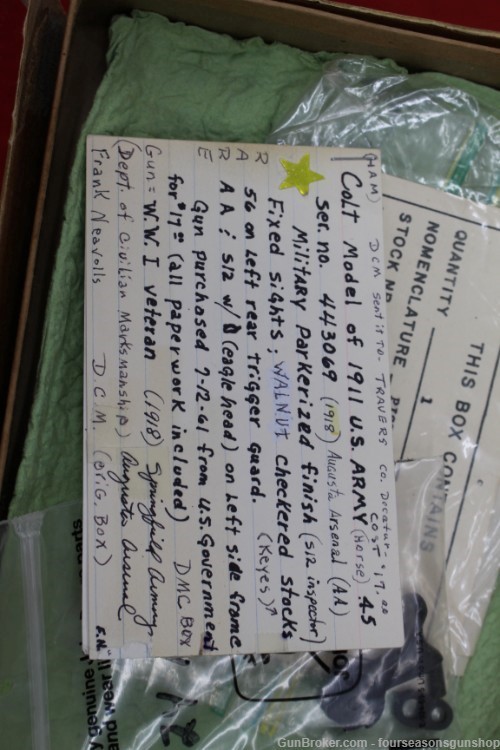 (HAM) DCM sent it to TRAVERS CO. Decatur - 17.00
COST
Colt Model of 1911 U.S. ARMY (Horse) .45
Ser. no. 443069 (1918) Augusta Arsenal (AA)
Military Parkerized finish (S12 inspector)
Fixed sights; WALNUT checkered stocks
(Keyes)
R 56 on left rear trigger guard.
A
R AA; S12 w/ (eagle head) on left side frame
E Gun purchased 7-12-61 from U.S. Government
for $17.00 (all paperwork included) DMC BOX
Gun = W.W. I veteran (1918) Springfield Armory,
(Dept. of Civilian Marksmanship) Augusta Arsenal
Frank Neavolls D.C.M. (Orig. Box)
F.N.
THIS BOX CONTAINS
QUANTITY 1
NOMENCLATURE
STOCK
y genuine
and wear
GunBroker.com - fourseasonsgunshop